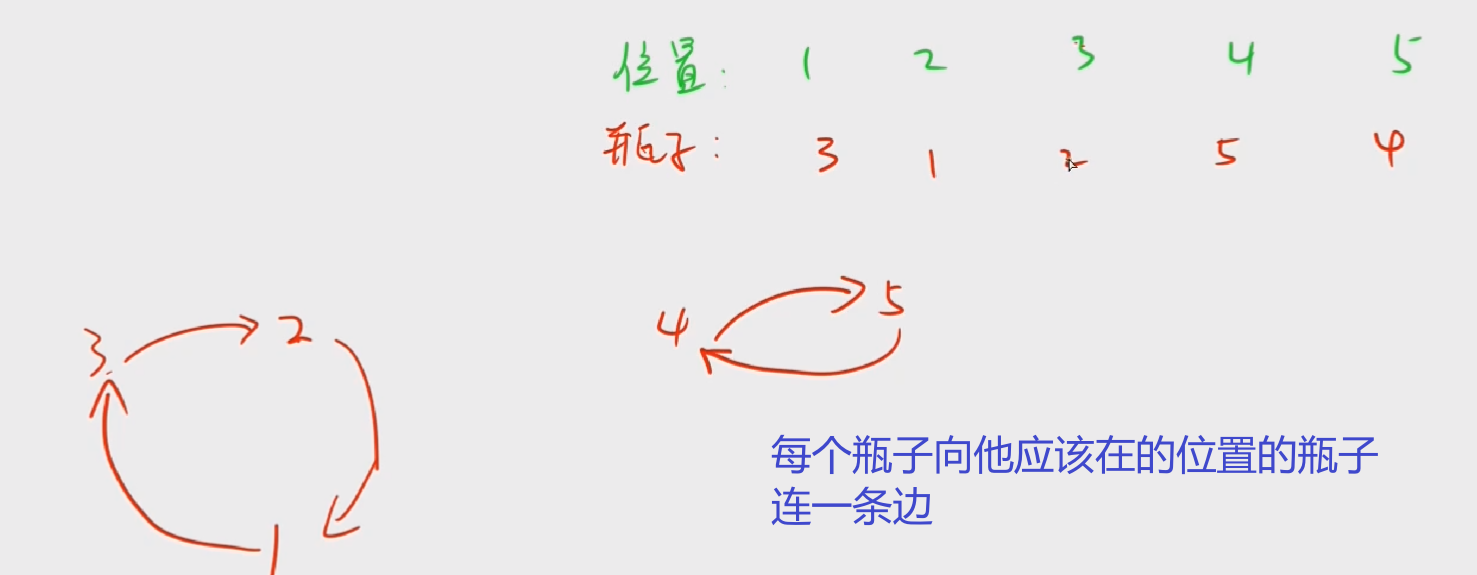 位置: 1 2 3 4 5
瓶子: 3 1 2 5 4
4 5
3 2
1
每个瓶子向他应该在的位置的瓶子
连一条边